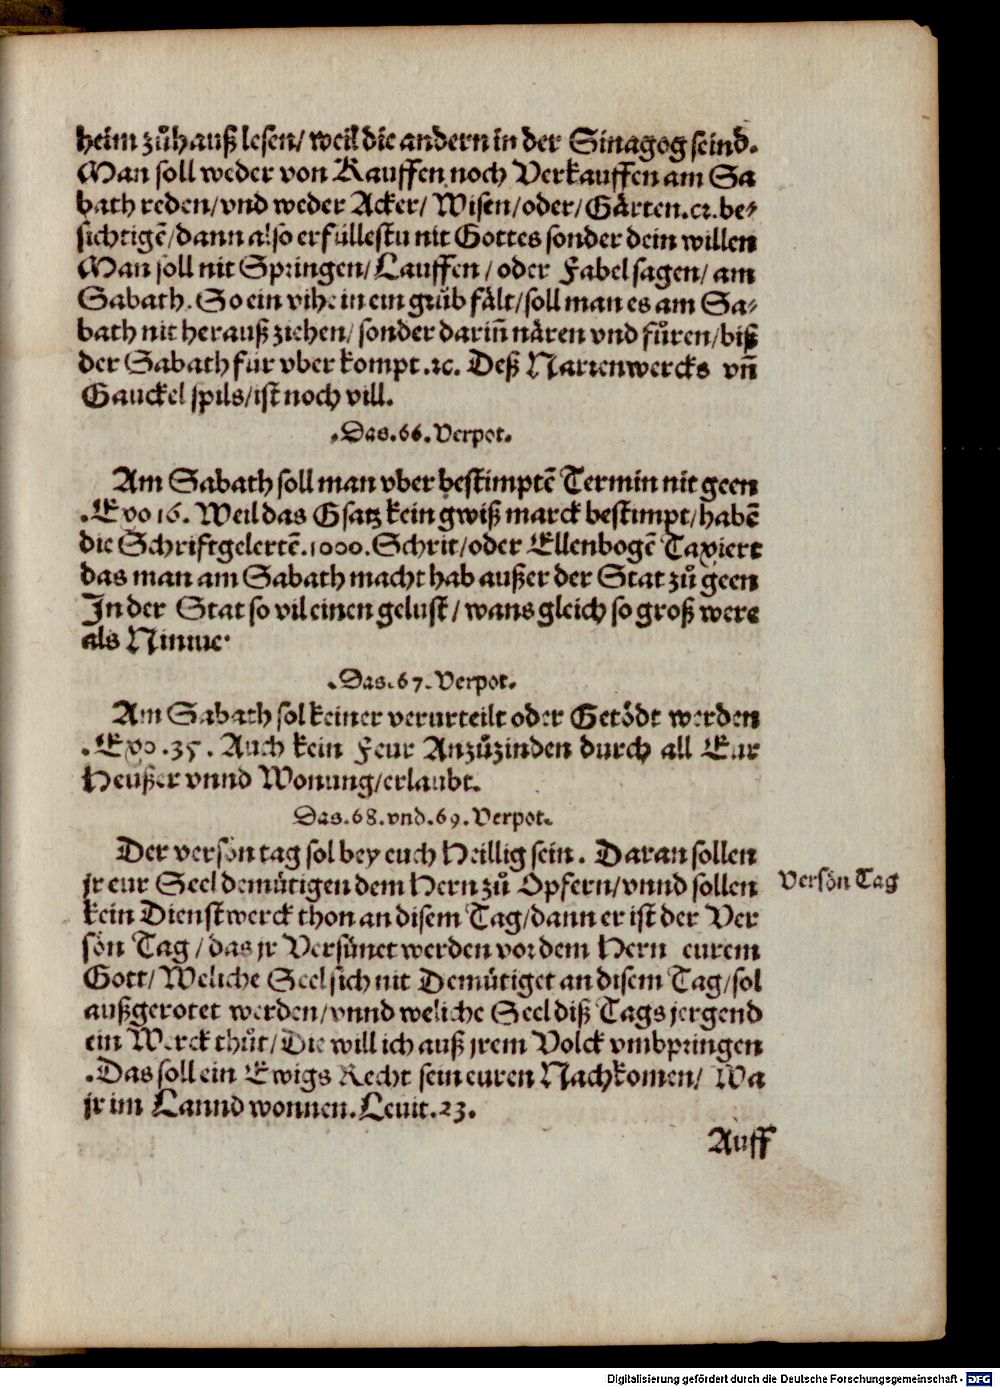 heim zůhauß lesen/ weil die andern in der Sinagog seind.
Man soll weder von Kauffen noch Verkauffen am Sa
bath reden/ vnd weder Acker/ Wisen/ oder/ Gärten.ꝛc. be⸗
sichtigẽ/ dann also erfüllestu nit Gottes sonder dein willen
Man soll nit Springen/ Lauffen/ oder Fabel sagen/ am
Sabath. So ein vihe in ein grůb fält/ soll man es am Sa⸗
bath nit herauß ziehen/ sonder dariñ nären vnd fůren/ biß
der Sabath für vber kompt.ꝛc. Deß Narrenwercks vñ
Gauckel spils/ ist noch vill.
.Das.66.Verpot.
Am Sabath soll man vber bestimptẽ Termin nit geen
.Exo 16. Weil das Gsatz kein gwiß marck bestimpt/ habẽ
die Schriftgelertẽ.1000.Schrit/ oder Ellenbogẽ Taxiert
das man am Sabath macht hab außer der Stat zů geen
In der Stat so vil einen gelust/ wans gleich so groß were
als Niniue.
.Das.67.Verpot.
Am Sabath sol keiner verurteilt oder Getödt werden
.Exo.35. Auch kein Feur Anzůzinden durch all Eur
Heußer vnnd Wonung/ erlaubt.
Das.68.vnd.69.Verpot.
Der versöntag sol bey euch Heillig sein. Daran sollen
jr eur Seel demütigen dem Hern zů Opfern/ vnnd sollen
kein Dienstwerck thon an disem Tag/ dann er ist der Ver
sön Tag/ das jr Versünet werden vor dem Hern eurem
Gott/ Weliche Seel sich nit Demütiget an disem Tag/ sol
außgerotet werden/ vnnd weliche Seel diß Tags jergend
ein Werck thůt/ Die will ich auß jrem Volck vmbpringen
.Das soll ein Ewigs Recht sein euren Nachkomen/ Wa
jr im Lannd wonnen. Leuit.23.
Versön Tag
Auff
Digitalisierung gefördert durch die Deutsche Forschungsgemeinschaft - DFG